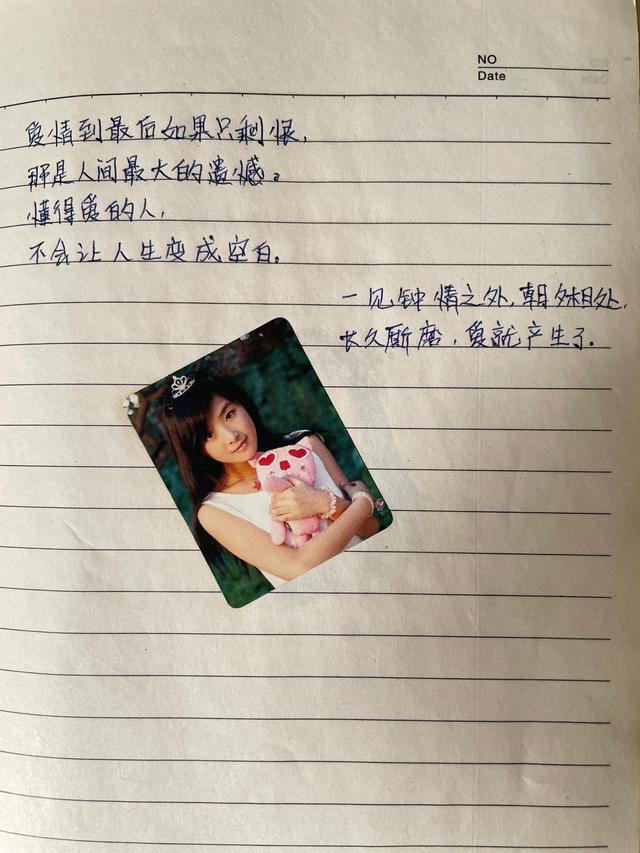 NO
Date
爱情到最后如果只剩恨,
那是人间最大的遗憾。
懂得爱的人,
不会让人生变成空白。
一见钟情之外,朝夕相处,
长久厮磨,爱就产生了.